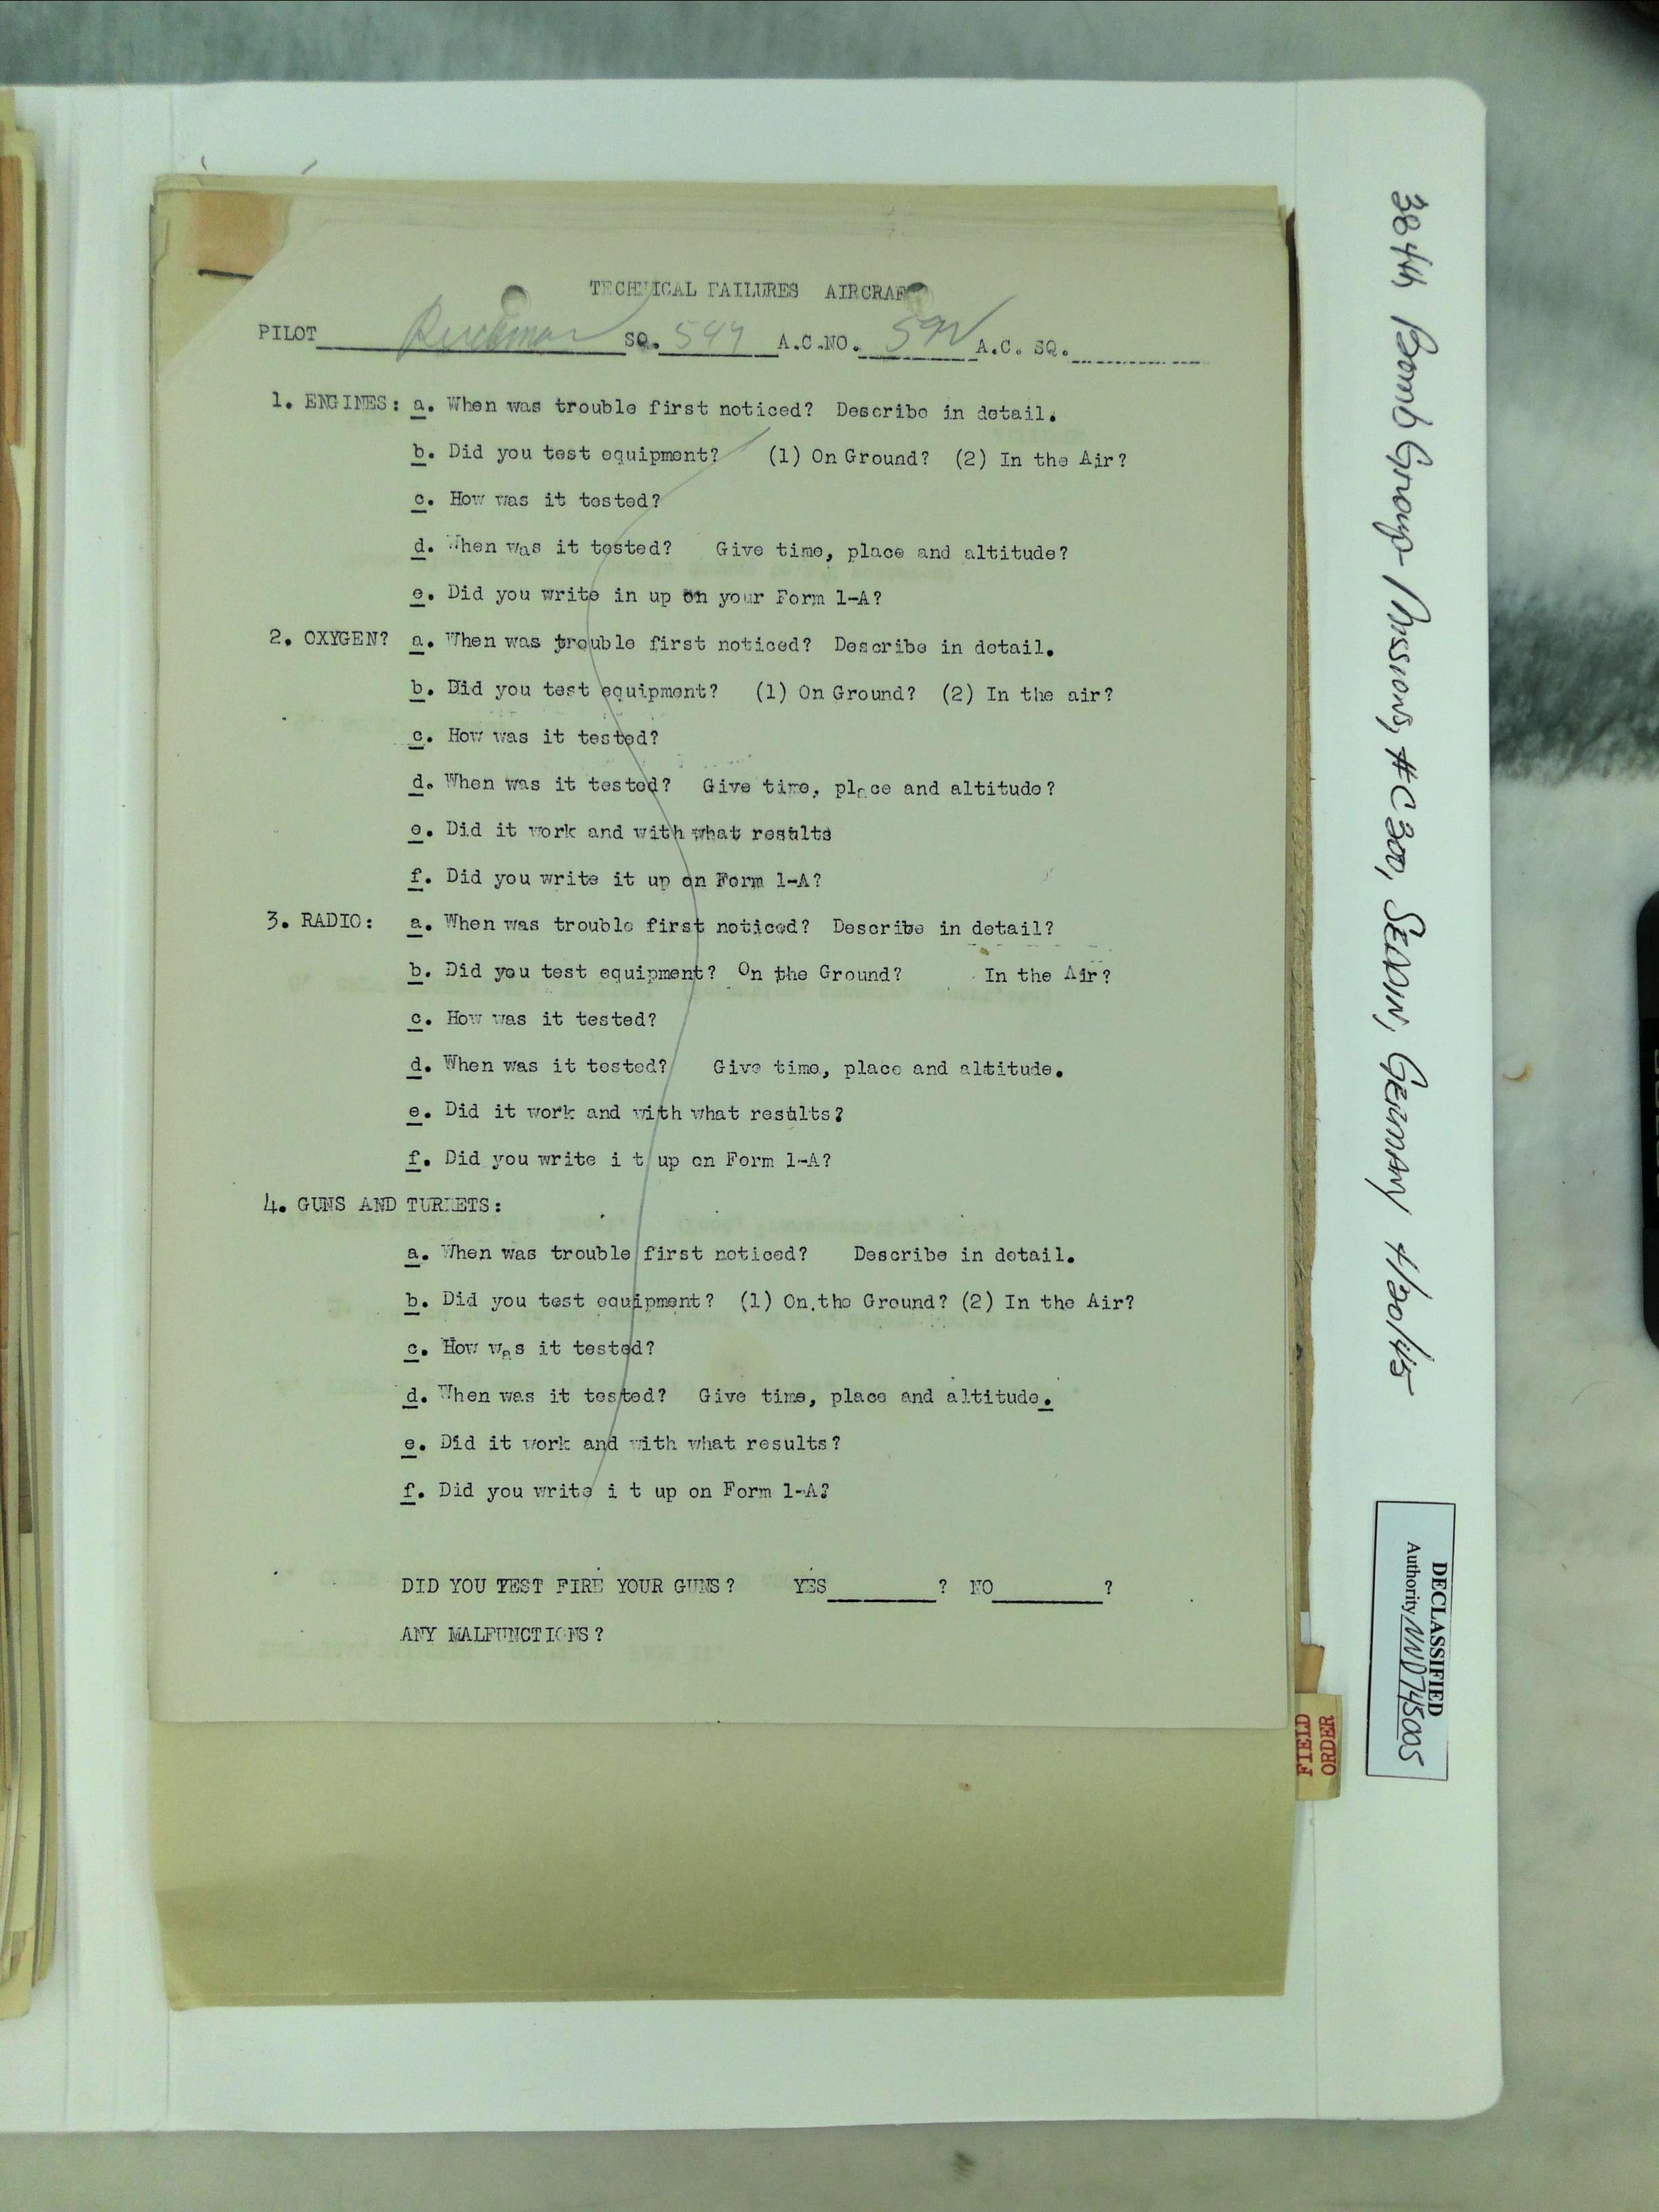 TECHNICAL FAILURES AIRCRAF
PILOT SQ. 544 A.C.NO. A.C. SQ.
1. ENGINES: a. When was trouble first noticed? Describe in detail.
b. Did you test equipment? (1) On Ground? (2) In the Air?
c. How was it tested?
d. When was it tested? Give time, place and altitude?
e. Did you write in up on your Form 1-A?
2. OXYGEN? a. When was trouble first noticed? Describe in detail.
b. Did you test equipment? (1) On Ground? (2) In the air?
c. How was it tested?
d. When was it tested? Give time, place and altitude?
e. Did it work and with what results
f. Did you write it up on Form 1-A?
3. RADIO: a. When was trouble first noticed? Describe in detail?
b. Did you test equipment? On the Ground? In the Air?
c. How was it tested?
d. When was it tested? Give time, place and altitude.
e. Did it work and with what results?
f. Did you write i t up on Form 1-A?
4. GUNS AND TURRETS:
a. When was trouble first noticed? Describe in detail.
b. Did you test equipment? (1) On the Ground? (2) In the Air?
c. How was it tested?
d. When was it tested? Give time, place and altitude.
e. Did it work and with what results?
f. Did you write i t up on Form 1-A?
DID YOU TEST FIRE YOUR GUNS? YES ? NO ?
ANY MALFUNCTIONS?
384th Bomb Group - Missions, #C300, SEDDIN, GERMANY 4/20/45
DECLASSIFIED
Authority NND745005
FIELD
ORDER